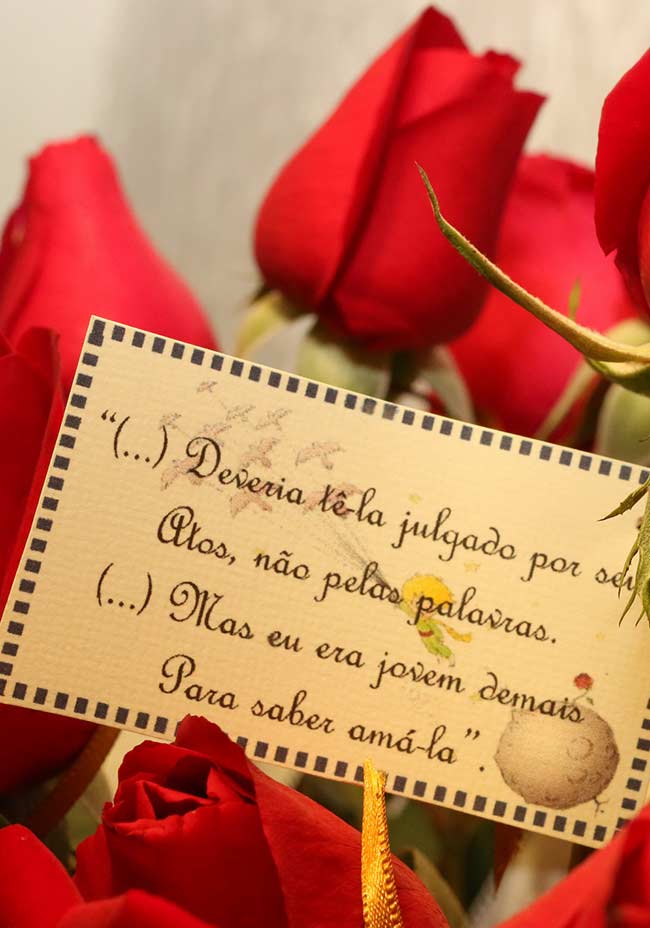 “(...) Deveria tê-la julgado por seu
Atos, não pelas palavras.
(...) Mas eu era jovem demais
Para saber amá-la”.